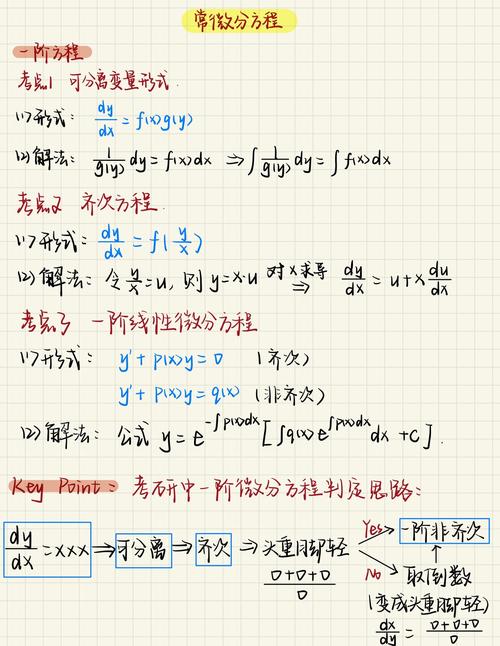 常微分方程
一阶方程
考点1 可分离变量形式.
(1)形式: dy/dx = f(x)g(y)
(2)解法: 1/g(y) dy = f(x)dx ⇒ ∫ 1/g(y) dy = ∫ f(x)dx
考点2 齐次方程.
(1)形式: dy/dx = f(y/x)
(2)解法: 令 y/x = u, 则 y = x·u 对x求导 ⇒ dy/dx = u + x du/dx
考点3 一阶线性微分方程
(1)形式: y' + p(x)y = 0 (齐次)
y' + p(x)y = q(x) (非齐次)
(2)解法: 公式 y = e^{-∫p(x)dx} [∫q(x)e^{∫p(x)dx}dx + C].
Key Point: 考研中一阶微分方程判定思路:
dy/dx = xxx ⇒ 可分离 ⇒ 齐次 ⇒ 头重脚轻 Yes → 一阶非齐次
□+□+□/□ No → 取倒数 ↑
(变成头重脚轻)
dx/dy = □+□+□/□